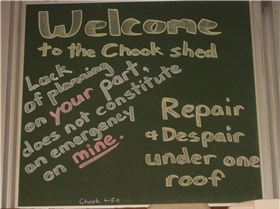 Welcome
to the Chook shed
Lack
of planning
on your part,
does not constitute
an emergency
on mine.
Repair
& Despair
under one
roof